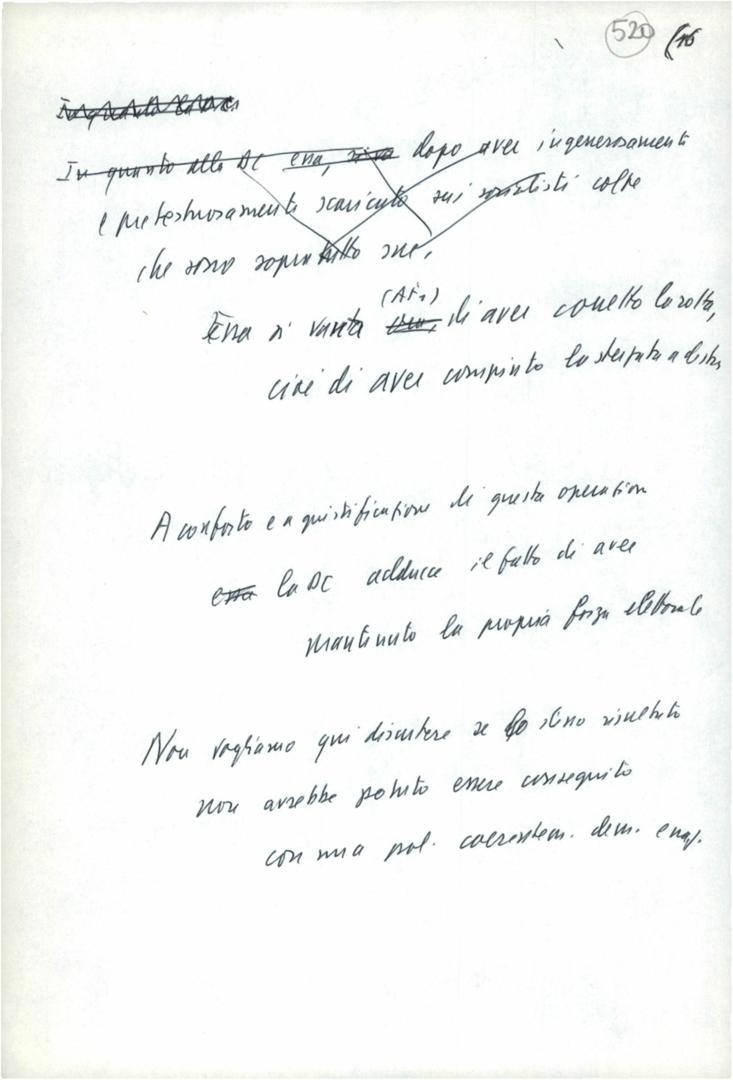 520 (16
In quanto la DC
In quanto alla DC essa, dopo aver ingenerosamente
e pretestuosamente scaricato sui socialisti colpe
che sono soprattutto sue,
(AF.)
Essa si vanta di aver corretto la rotta,
cioè di aver compiuto la sterzata a destra
A conforto e a giustificazione di questa operazione
essa la DC adduce il fatto di aver
mantenuto la propria forza elettorale
Non vogliamo qui discutere se lo stesso risultato
non avrebbe potuto essere conseguito
con una pol. coerentem. dem. e